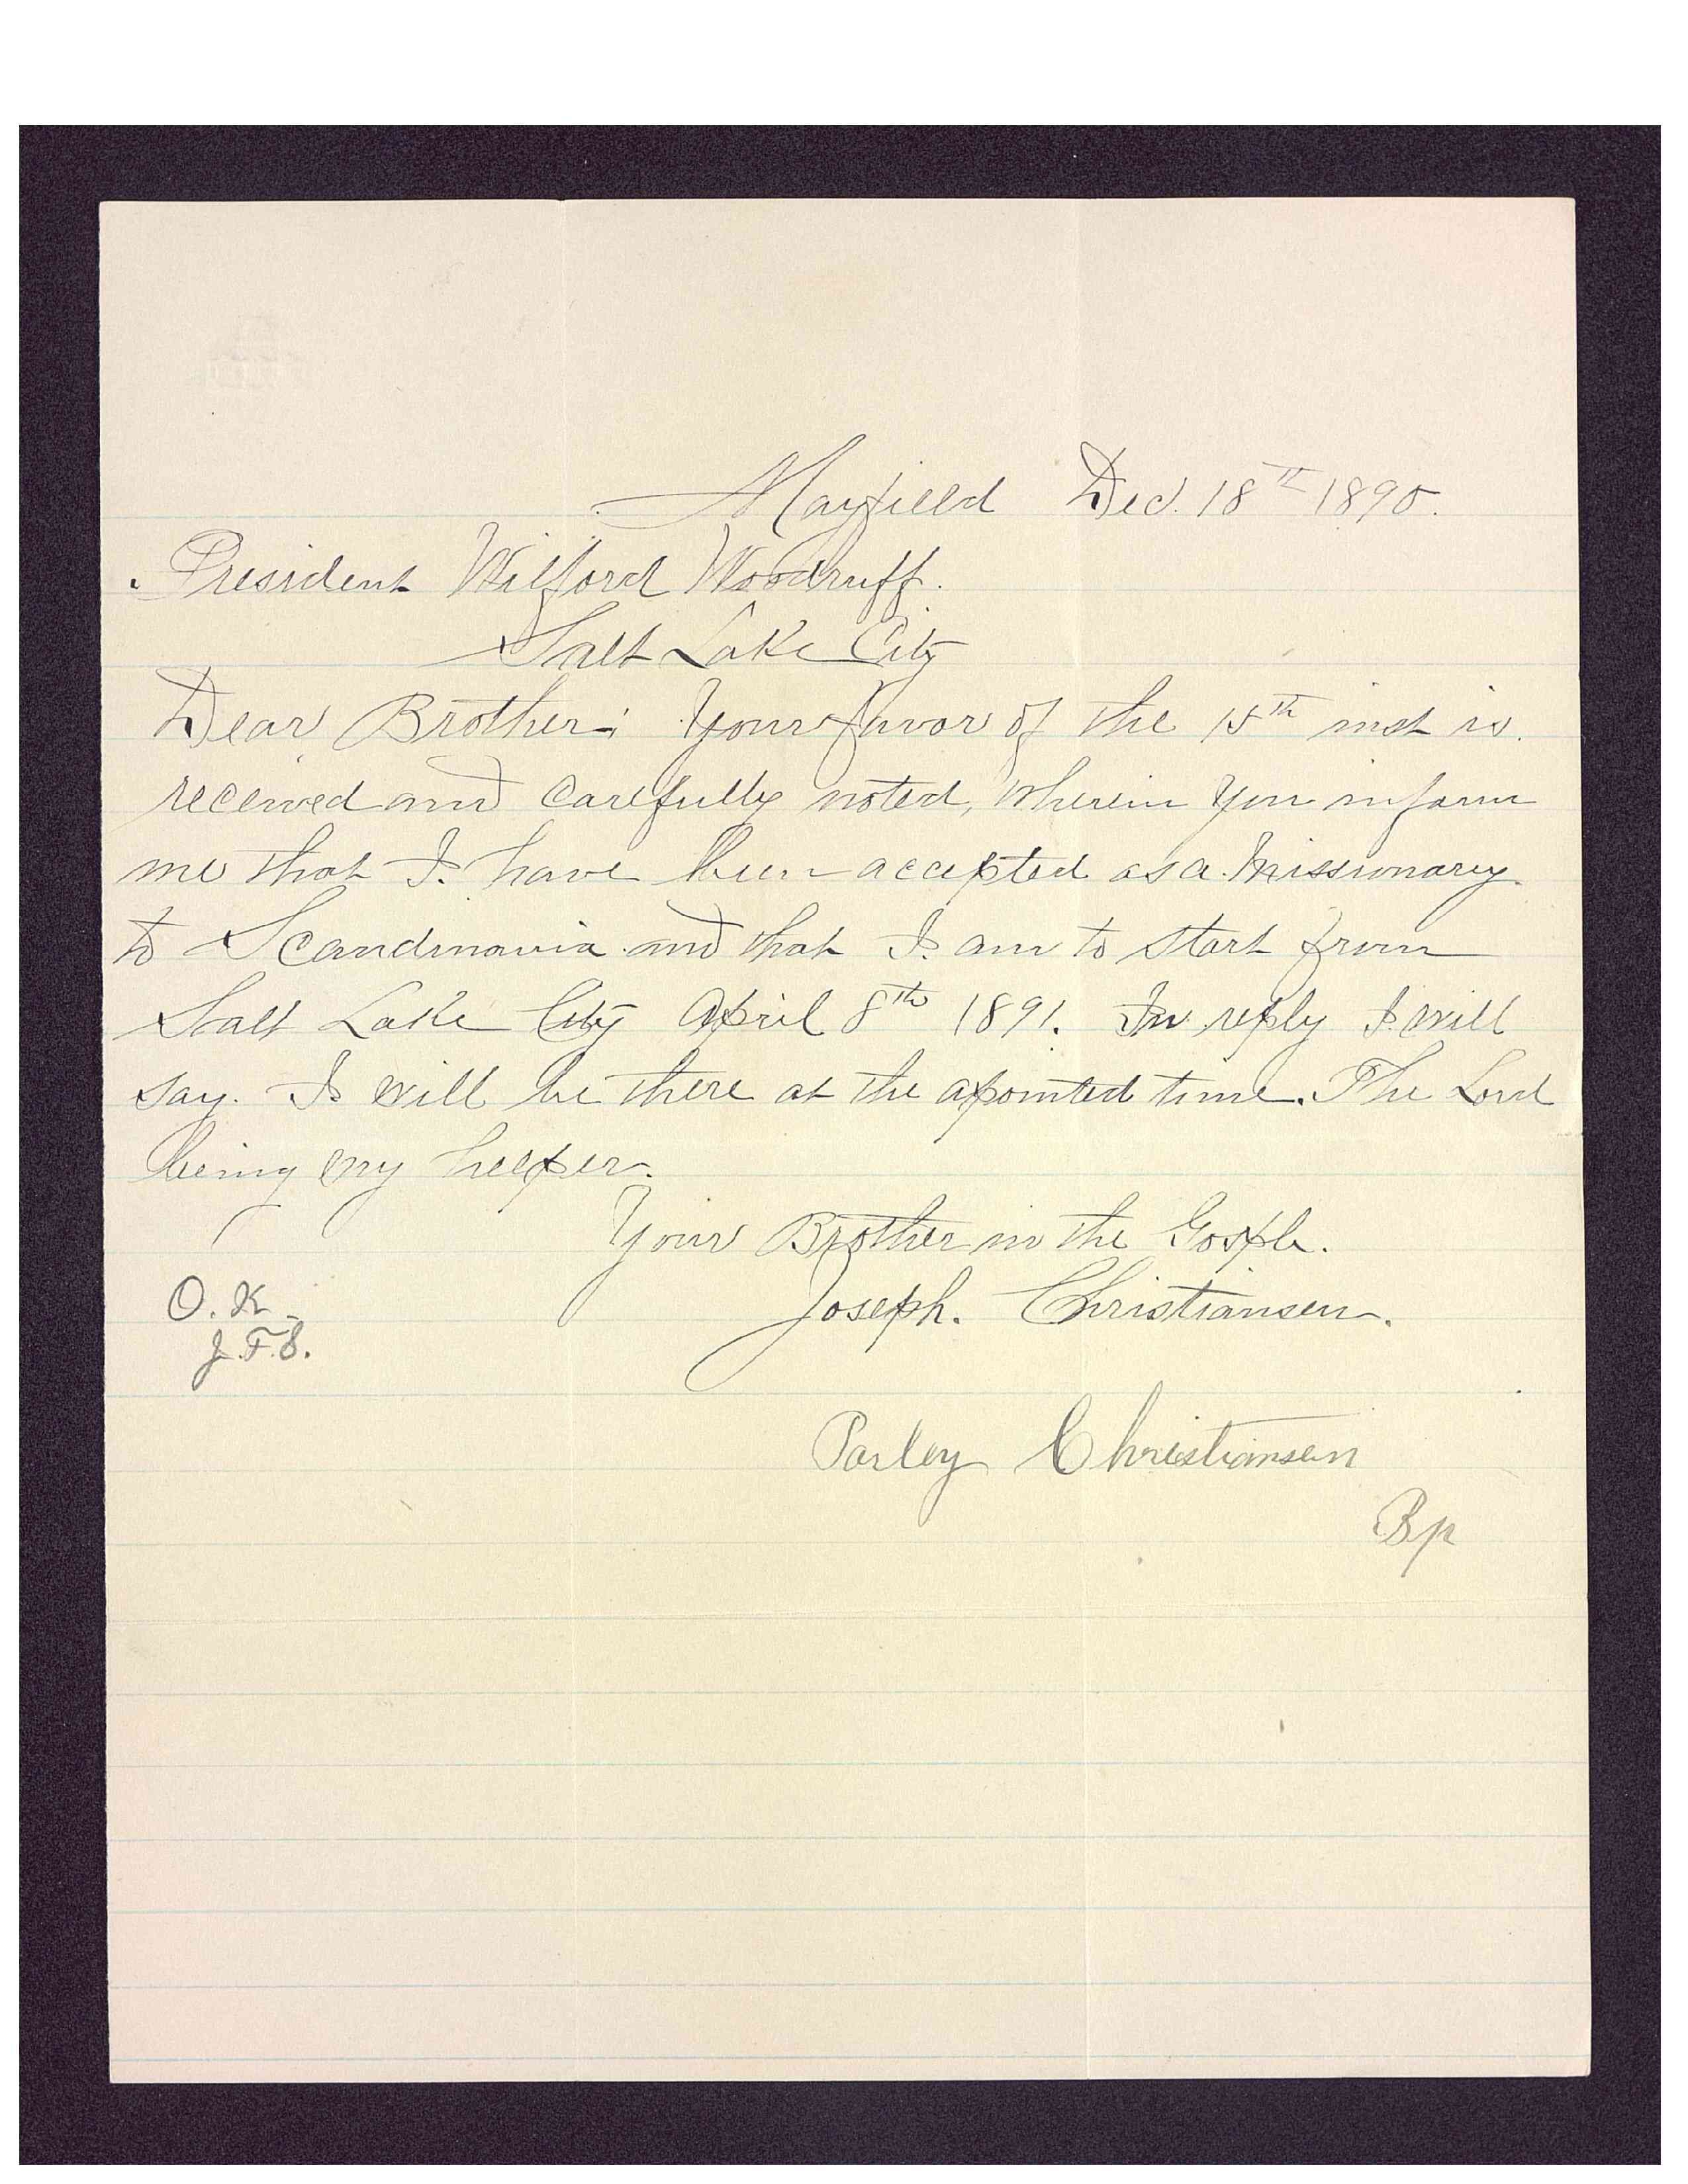 Mayfield Dec. 18th 1890.
President Wilford Woodruff.
Salt Lake City
Dear Brother; Your favor of the 15th inst is
received and carefully noted, wherein you inform
me that I have been accepted as a Missionary
to Scandinavia and that I am to start from
Salt Lake City April 8th 1891. In reply I will
say. I will be there at the apointed time. The Lord
being my helper.
Your Brother in the Gosple.
Joseph. Christiansen.
O.K.
J.F.S.
Parley Christiansen
Bp